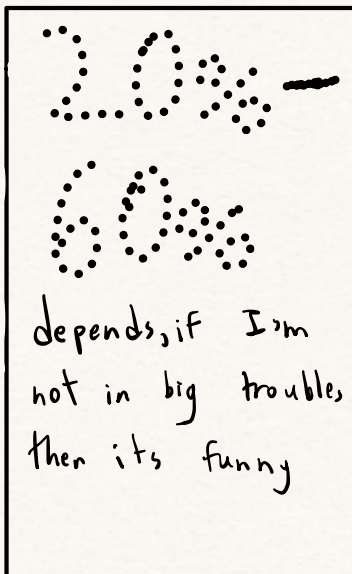 20% -
60%
depends, if I'm
not in big trouble,
then its funny